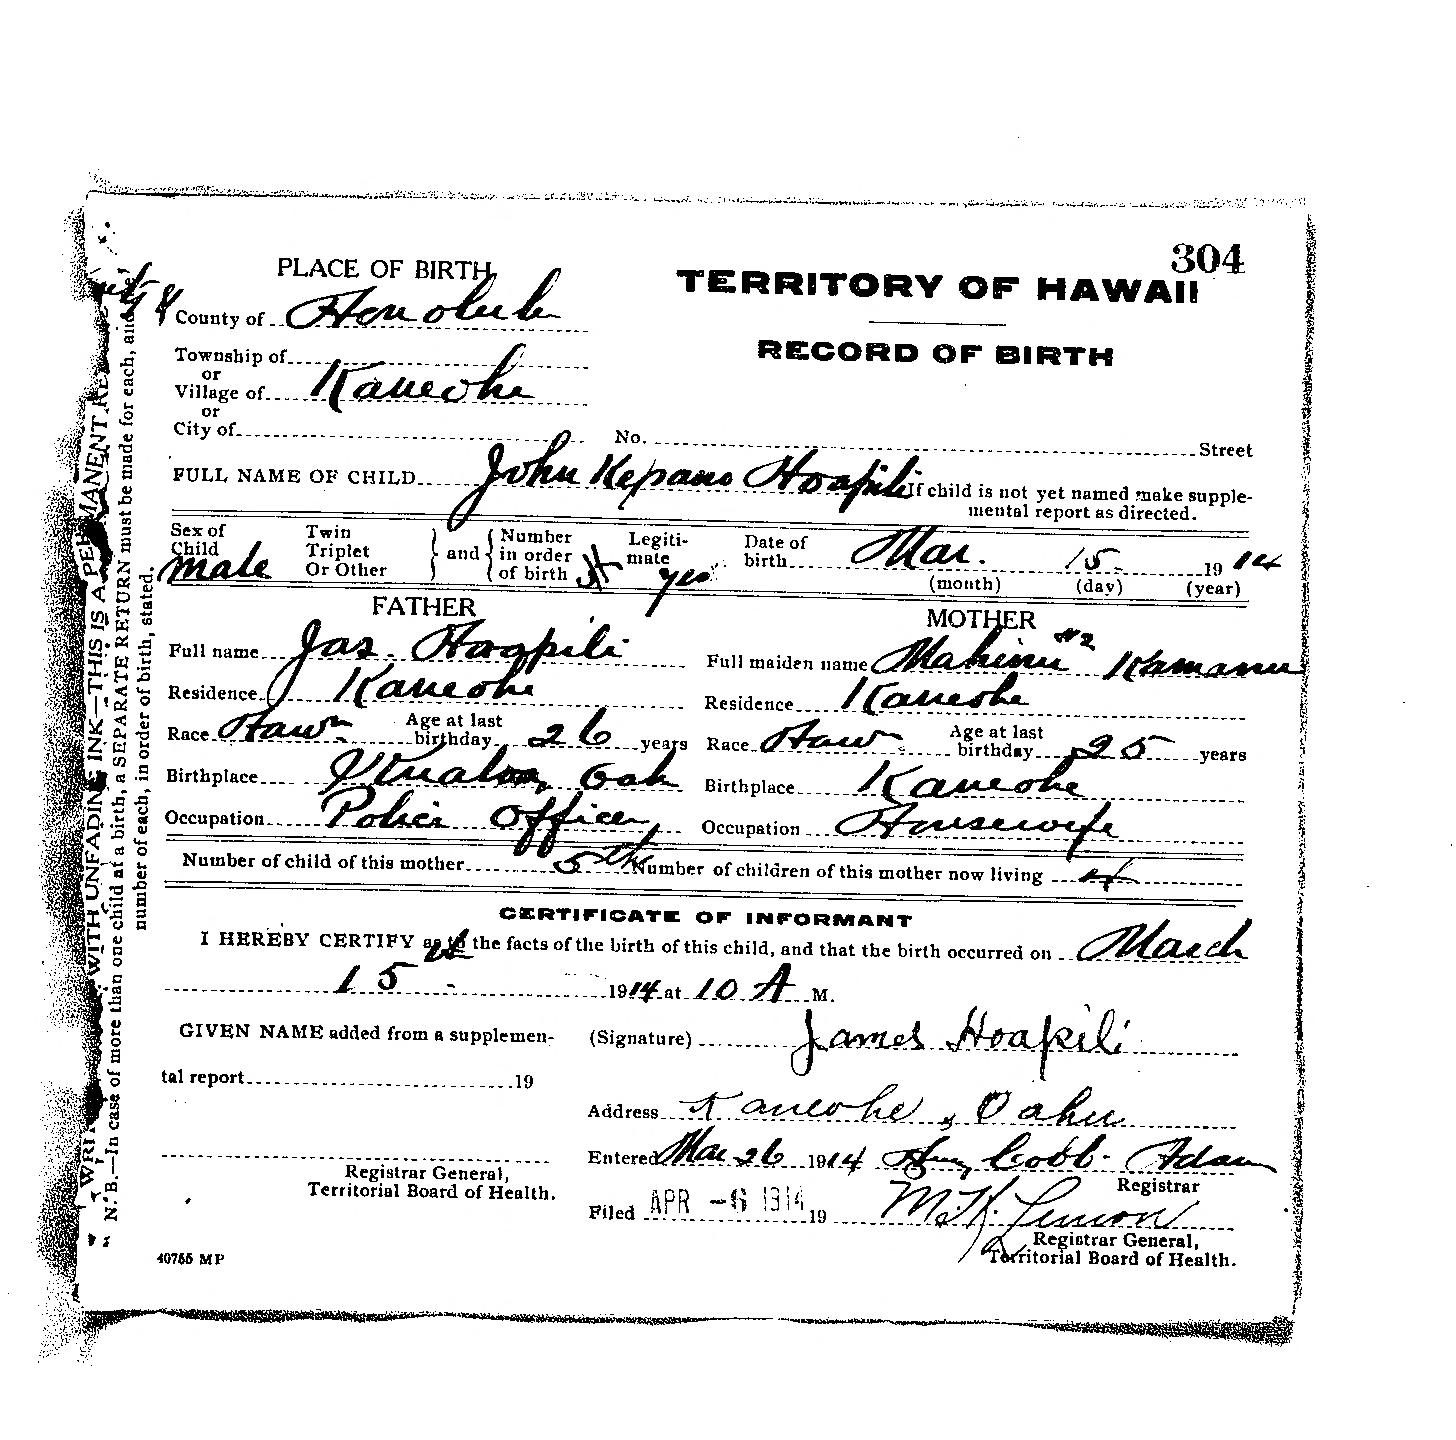 304
PLACE OF BIRTH
TERRITORY OF HAWAII
County of Honolulu
RECORD OF BIRTH
Township of
or
Village of Kaneohe
or
City of No. Street
FULL NAME OF CHILD John Kepano Hoapili If child is not yet named make supple-
mental report as directed.
Sex of Child male Twin Triplet Or Other and Number in order of birth Legiti-mate yes Date of birth Mar. 15 1914
(month) (day) (year)
FATHER
MOTHER
Full name Jas. Hoapili
Full maiden name Mahinu #2 Kamanu
Residence Kaneohe
Residence Kaneohe
Race Hawn Age at last birthday 26 years
Race Haw Age at last birthday 25 years
Birthplace Oah
Birthplace Kaneohe
Occupation Police Officer
Occupation Housewife
Number of child of this mother 5th Number of children of this mother now living 4
CERTIFICATE OF INFORMANT
I HEREBY CERTIFY as to the facts of the birth of this child, and that the birth occurred on March
15 - 1914 at 10 A M.
GIVEN NAME added from a supplemen-
tal report 19
(Signature) James Hoapili
Address Kaneohe, Oahu
Entered Mar 26 1914 Cobb Adams
Registrar
Registrar General,
Territorial Board of Health.
Filed APR -6 1914 19
Registrar General,
Territorial Board of Health.
40755 MP
WITH UNFADING INK—THIS IS A PERMANENT
N. B.—In case of more than one child at a birth, a SEPARATE RETURN must be made for each, and
number of each, in order of birth, stated.